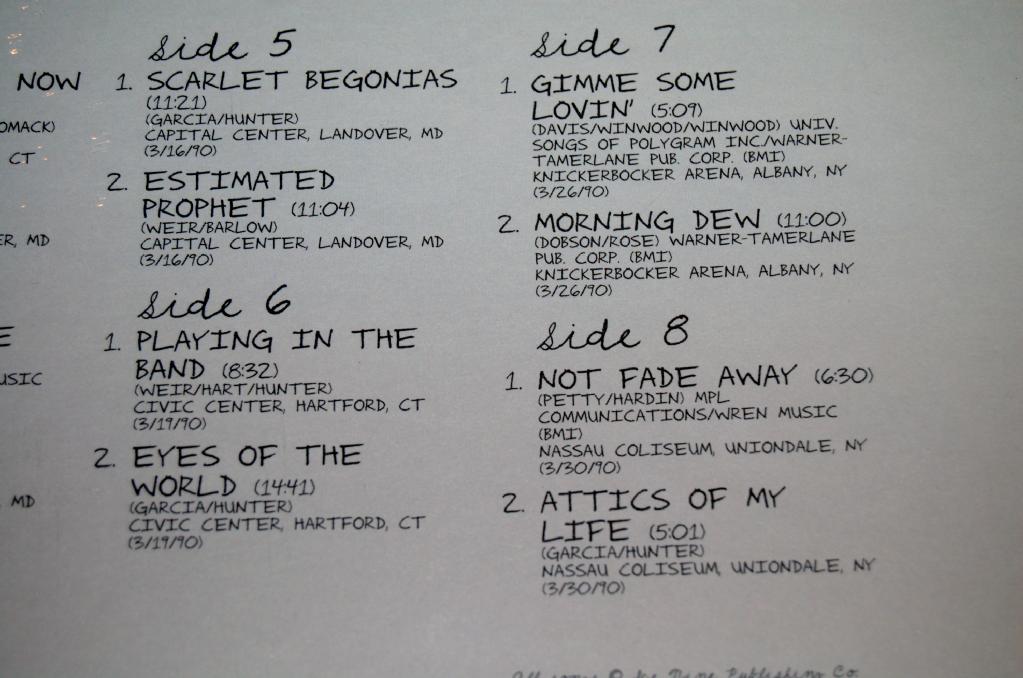 NOW
OMACK)
CT
ER, MD
E
USIC
MD
Side 5
1. SCARLET BEGONIAS
(11:21)
(GARCIA/HUNTER)
CAPITAL CENTER, LANDOVER, MD
(3/16/90)
2. ESTIMATED
PROPHET (11:04)
(WEIR/BARLOW)
CAPITAL CENTER, LANDOVER, MD
(3/16/90)
Side 6
1. PLAYING IN THE
BAND (8:32)
(WEIR/HART/HUNTER)
CIVIC CENTER, HARTFORD, CT
(3/19/90)
2. EYES OF THE
WORLD (14:41)
(GARCIA/HUNTER)
CIVIC CENTER, HARTFORD, CT
(3/19/90)
Side 7
1. GIMME SOME
LOVIN' (5:09)
(DAVIS/WINWOOD/WINWOOD) UNIV.
SONGS OF POLYGRAM INC./WARNER-
TAMERLANE PUB. CORP. (BMI)
KNICKERBOCKER ARENA, ALBANY, NY
(3/26/90)
2. MORNING DEW (11:00)
(DOBSON/ROSE) WARNER-TAMERLANE
PUB. CORP. (BMI)
KNICKERBOCKER ARENA, ALBANY, NY
(3/26/90)
Side 8
1. NOT FADE AWAY (6:30)
(PETTY/HARDIN) MPL
COMMUNICATIONS/WREN MUSIC
(BMI)
NASSAU COLISEUM, UNIONDALE, NY
(3/30/90)
2. ATTICS OF MY
LIFE (5:01)
(GARCIA/HUNTER)
NASSAU COLISEUM, UNIONDALE, NY
(3/30/90)
All songs © Ice Nine Publishing Co.